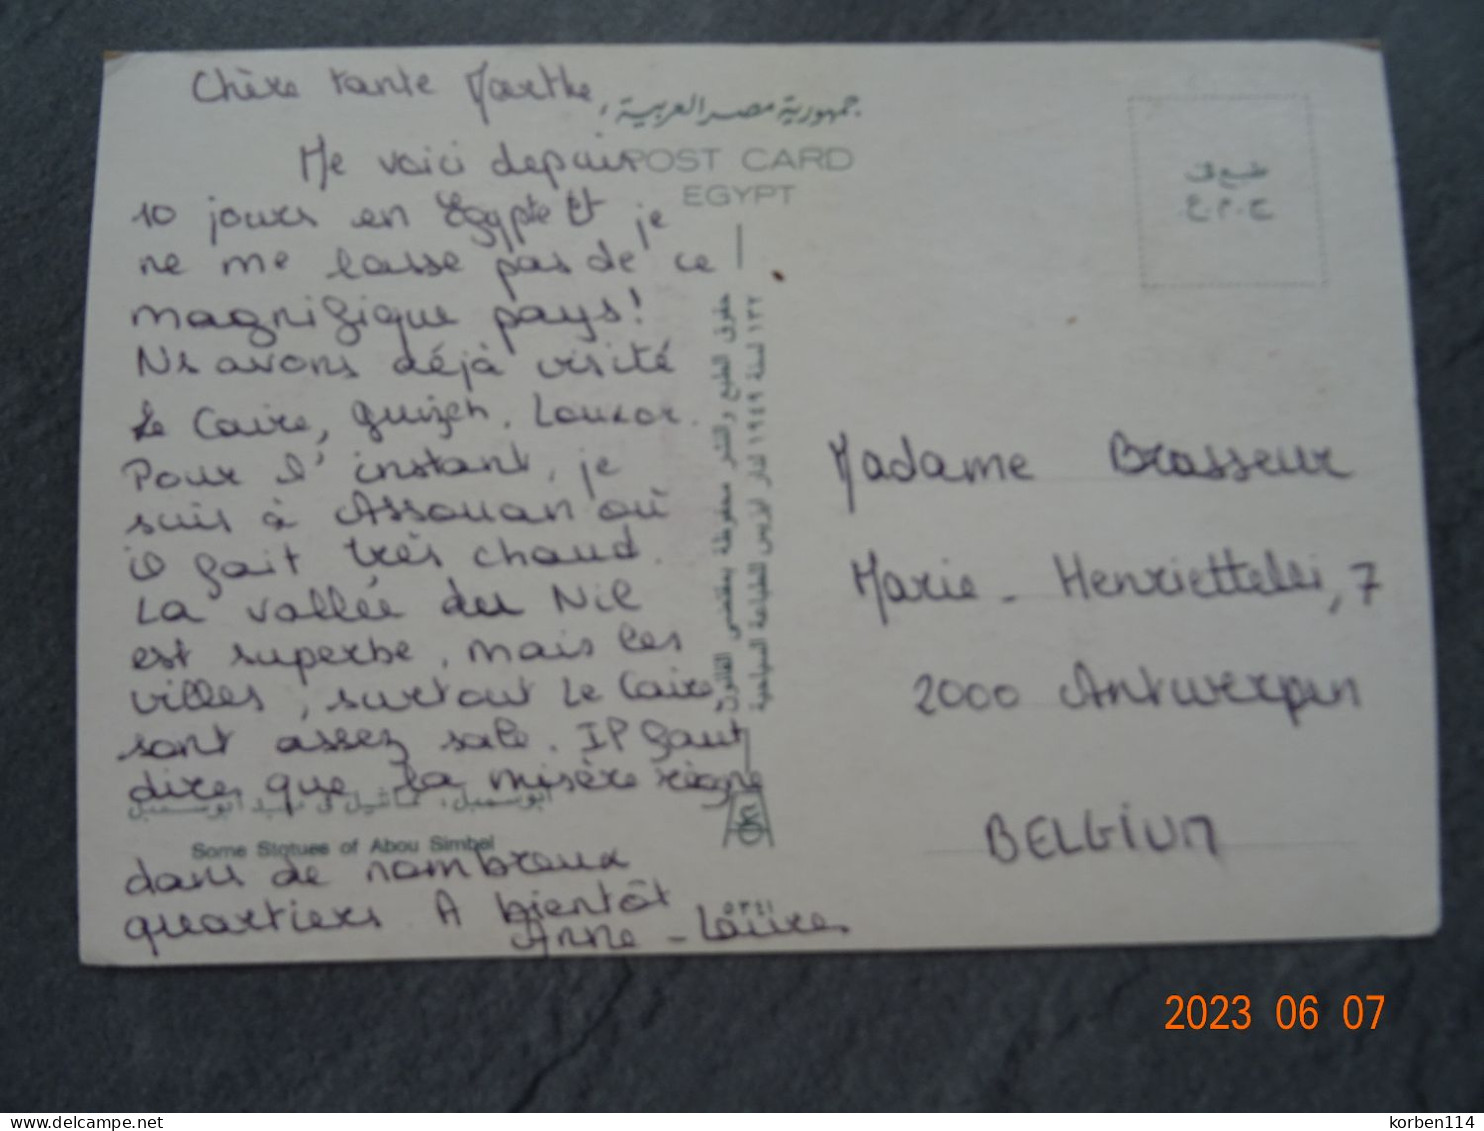 Chère tante Marthe,
جمهورية مصر العربية
Me voici depuis
POST CARD
EGYPT
10 jours en Egypte et je
ne me lasse pas de ce
magnifique pays!
Ns avons déjà visité
Le Caire, Guizeh, Louxor.
Pour l'instant, je
suis à Assouan où
il fait très chaud.
La vallée du Nil
est superbe, mais les
villes, surtout Le Caire
sont assez sale. Il faut
dire que la misère règne
أبو سمبل، تماثيل فى معبد أبو سمبل
Some Statues of Abou Simbel
dans de nombreux
quartiers A bientôt
Anne-Laure
٥٣٤١
حقوق الطبع والنشر محفوظة بمقتضى القانون
١٣٢ لسنة ١٩٤٩ لدار لوريس للطباعة السياحية
طبع فى
ج.م.ع
Madame Brasseur
Marie-Henriettelei, 7
2000 Antwerpen
BELGIUM
2023 06 07
korben114